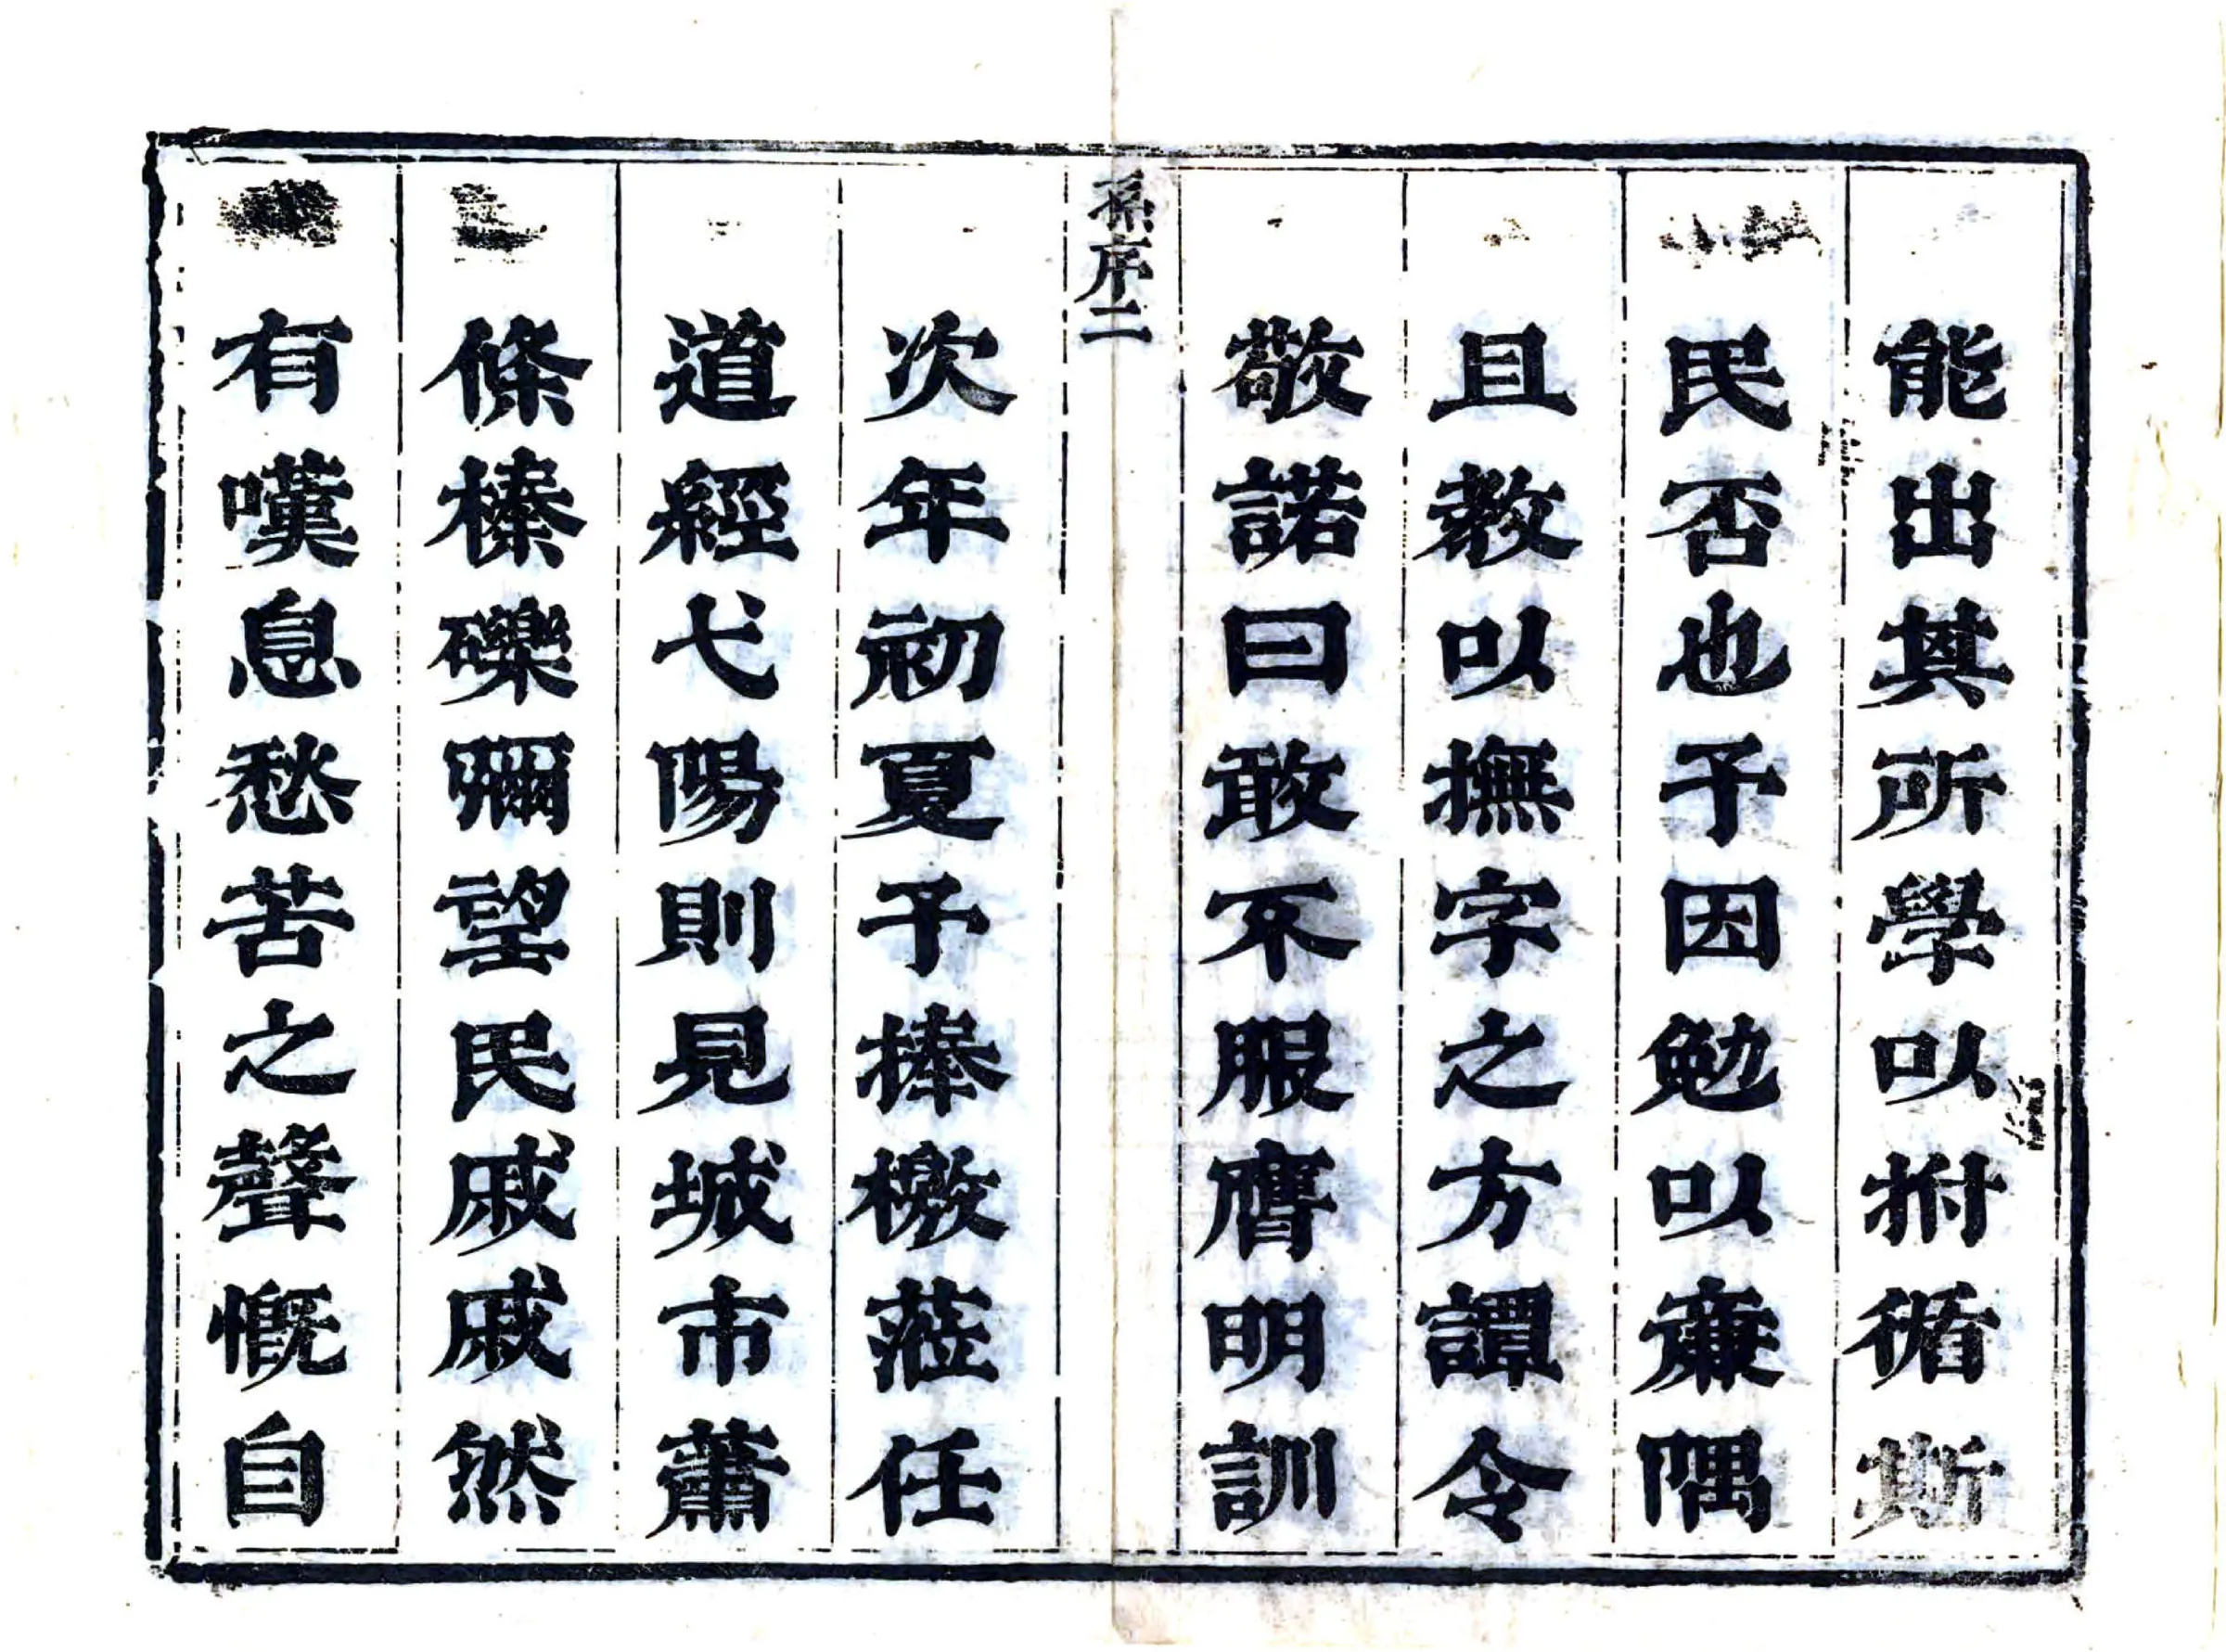 能出其所學以拊循斯
民否也予因勉以亷隅
且教以撫字之方譚令
敬諾曰敢不服膺明訓
孫序二
次年初夏予捧檄蒞任
道經弋陽則見城市蕭
條榛礫彌望民戚戚然
有嘆息愁苦之聲慨自